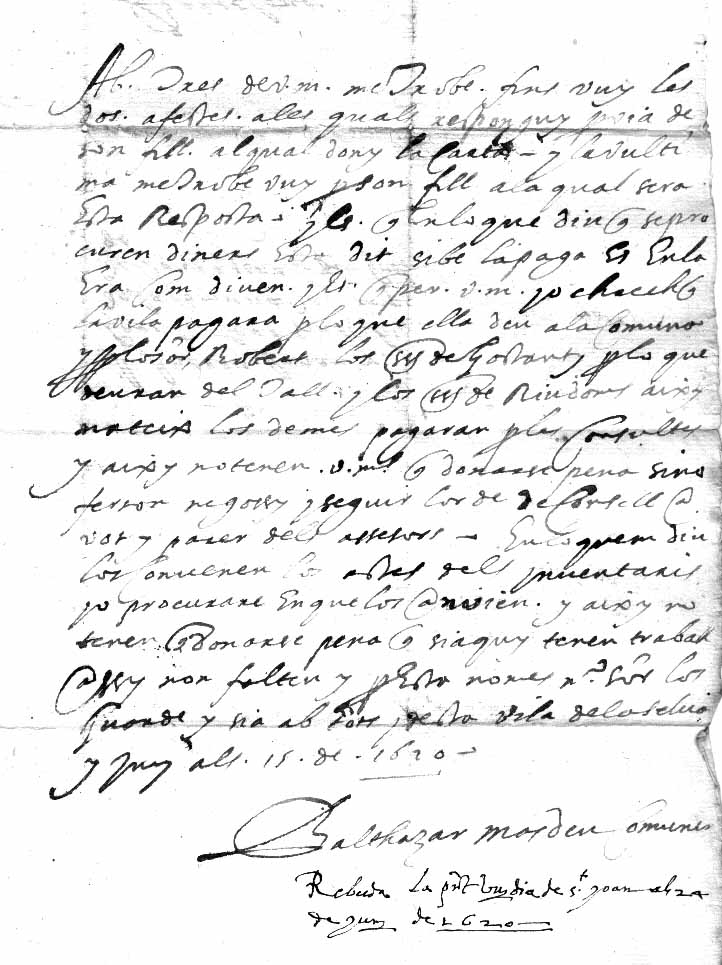 Ab. Tres de v.m. me trobe. fins vuy les
dos. afestes. ales quals responguy p via de
son fill. al qual dony la carta - y la vulti
ma me trobe vuy p son fill ala qual sera
esta Resposta - y es. q en lo que diu q se pro
curen diners esta dit si be la paga es en la
Era com diuen. y es. q per. v.m. jo
la vila pagara p lo que ella deu ala Comuna
y p los Robert los de p lo que
deuran del Tall. y los de Riudoms aixy
mateix los demes pagaran p las Consultes
y aixy no tenen. v.ms. q donarse pena sino
fer son negossy y seguir lorde de Consell
vot y parer dels assesors - En lo quem diu
los convenen los actes dels ynventaris
jo procurare en que los y aixy no
tenen q donarse pena q si aquy tenen traball
assy non falten y p esta nomes n.º Sor los
Guarde y sia ab tots y desta vila dela selva
y Juny als. 15. de. 1620 -
Balthazar Masdeu Comunes
Rebuda la pnt vuy dia de St. Joan als 24
de juny de 1620